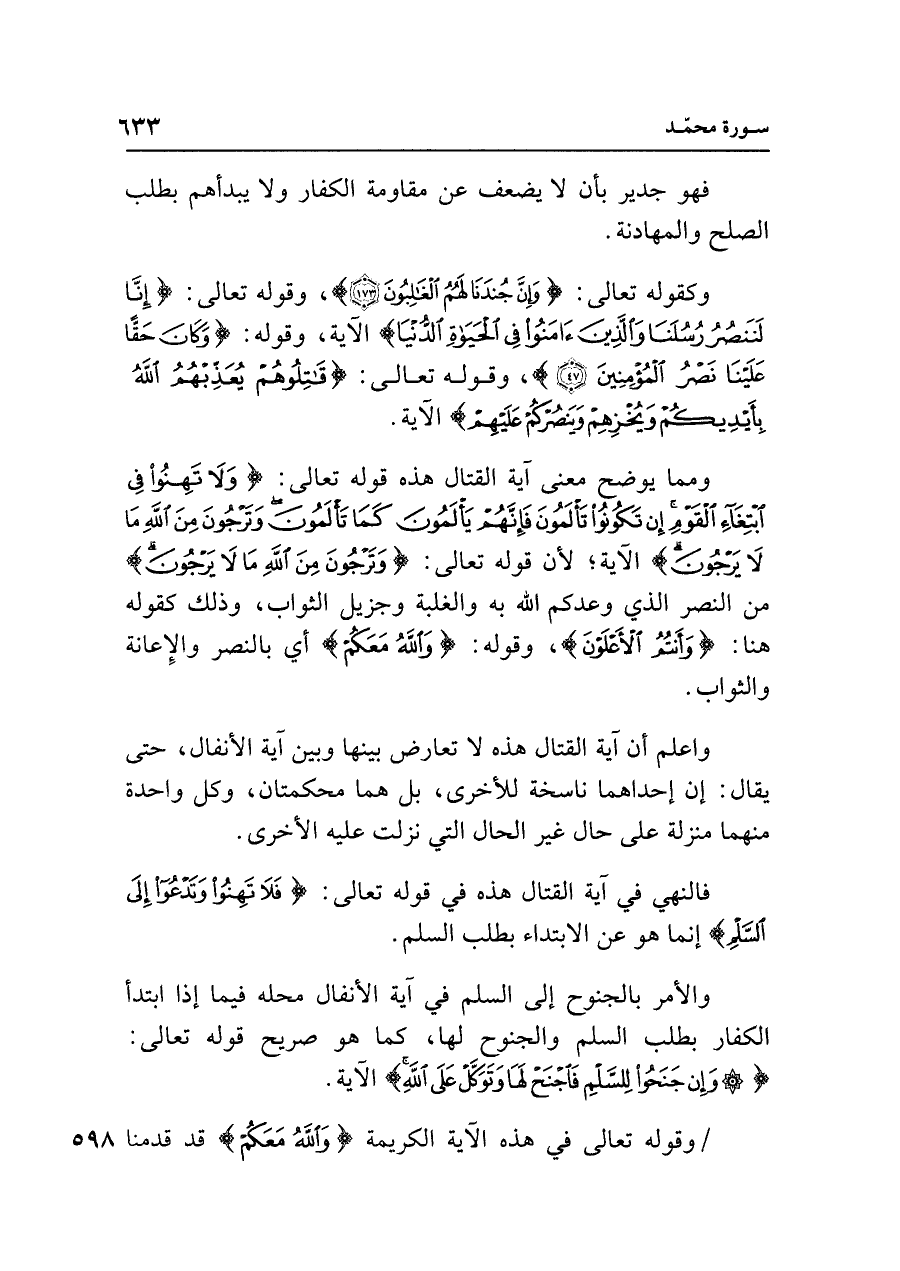 سورة محمّد ٦٣٣
فهو جدير بأن لا يضعف عن مقاومة الكفار ولا يبدأهم بطلب
الصلح والمهادنة.
وكقوله تعالى: ﴿ وَإِنَّ جُندَنَا لَهُمُ ٱلْغَٰلِبُونَ ١٧٣﴾، وقوله تعالى: ﴿ إِنَّا
لَنَنصُرُ رُسُلَنَا وَٱلَّذِينَ ءَامَنُواْ فِي ٱلْحَيَوٰةِ ٱلدُّنْيَا﴾ الآية، وقوله: ﴿ وَكَانَ حَقًّا
عَلَيْنَا نَصْرُ ٱلْمُؤْمِنِينَ ٤٧ ﴾، وقوله تعالى: ﴿ قَٰتِلُوهُمْ يُعَذِّبْهُمُ ٱللَّهُ
بِأَيْدِيكُمْ وَيُخْزِهِمْ وَيَنصُرْكُمْ عَلَيْهِمْ﴾ الآية.
ومما يوضح معنى آية القتال هذه قوله تعالى: ﴿ وَلَا تَهِنُواْ فِي
ٱبْتِغَآءِ ٱلْقَوْمِۖ إِن تَكُونُواْ تَأْلَمُونَ فَإِنَّهُمْ يَأْلَمُونَ كَمَا تَأْلَمُونَۖ وَتَرْجُونَ مِنَ ٱللَّهِ مَا
لَا يَرْجُونَۗ﴾ الآية؛ لأن قوله تعالى: ﴿ وَتَرْجُونَ مِنَ ٱللَّهِ مَا لَا يَرْجُونَۗ﴾
من النصر الذي وعدكم الله به والغلبة وجزيل الثواب، وذلك كقوله
هنا: ﴿ وَأَنتُمُ ٱلْأَعْلَوْنَ﴾، وقوله: ﴿ وَٱللَّهُ مَعَكُمْ﴾ أي بالنصر والإعانة
والثواب.
واعلم أن آية القتال هذه لا تعارض بينها وبين آية الأنفال، حتى
يقال: إن إحداهما ناسخة للأخرى، بل هما محكمتان، وكل واحدة
منهما منزلة على حال غير الحال التي نزلت عليه الأخرى.
فالنهي في آية القتال هذه في قوله تعالى: ﴿ فَلَا تَهِنُواْ وَتَدْعُوٓاْ إِلَى
ٱلسَّلْمِ﴾ إنما هو عن الابتداء بطلب السلم.
والأمر بالجنوح إلى السلم في آية الأنفال محله فيما إذا ابتدأ
الكفار بطلب السلم والجنوح لها، كما هو صريح قوله تعالى:
﴿ ۞ وَإِن جَنَحُواْ لِلسَّلْمِ فَٱجْنَحْ لَهَا وَتَوَكَّلْ عَلَى ٱللَّهِۚ﴾ الآية.
/ وقوله تعالى في هذه الآية الكريمة ﴿ وَٱللَّهُ مَعَكُمْ﴾ قد قدمنا ٥٩٨